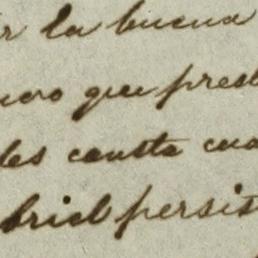 r la buena
uvo que prest
les consta cua
briel persist